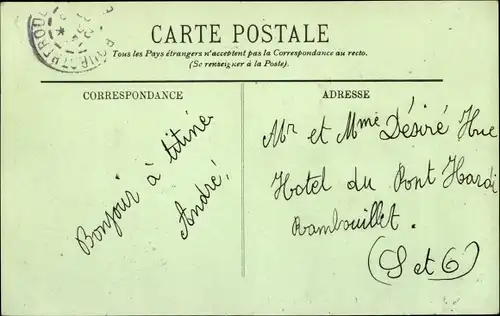 CARTE POSTALE
Tous les Pays étrangers n'acceptent pas la Correspondance au recto.
(Se renseigner à la Poste).
CORRESPONDANCE
Bonjour à titine
André!
ADRESSE
Mr et Mme Désiré Hue
Hotel du Pont Hardi
Rambouillet.
(S et O)